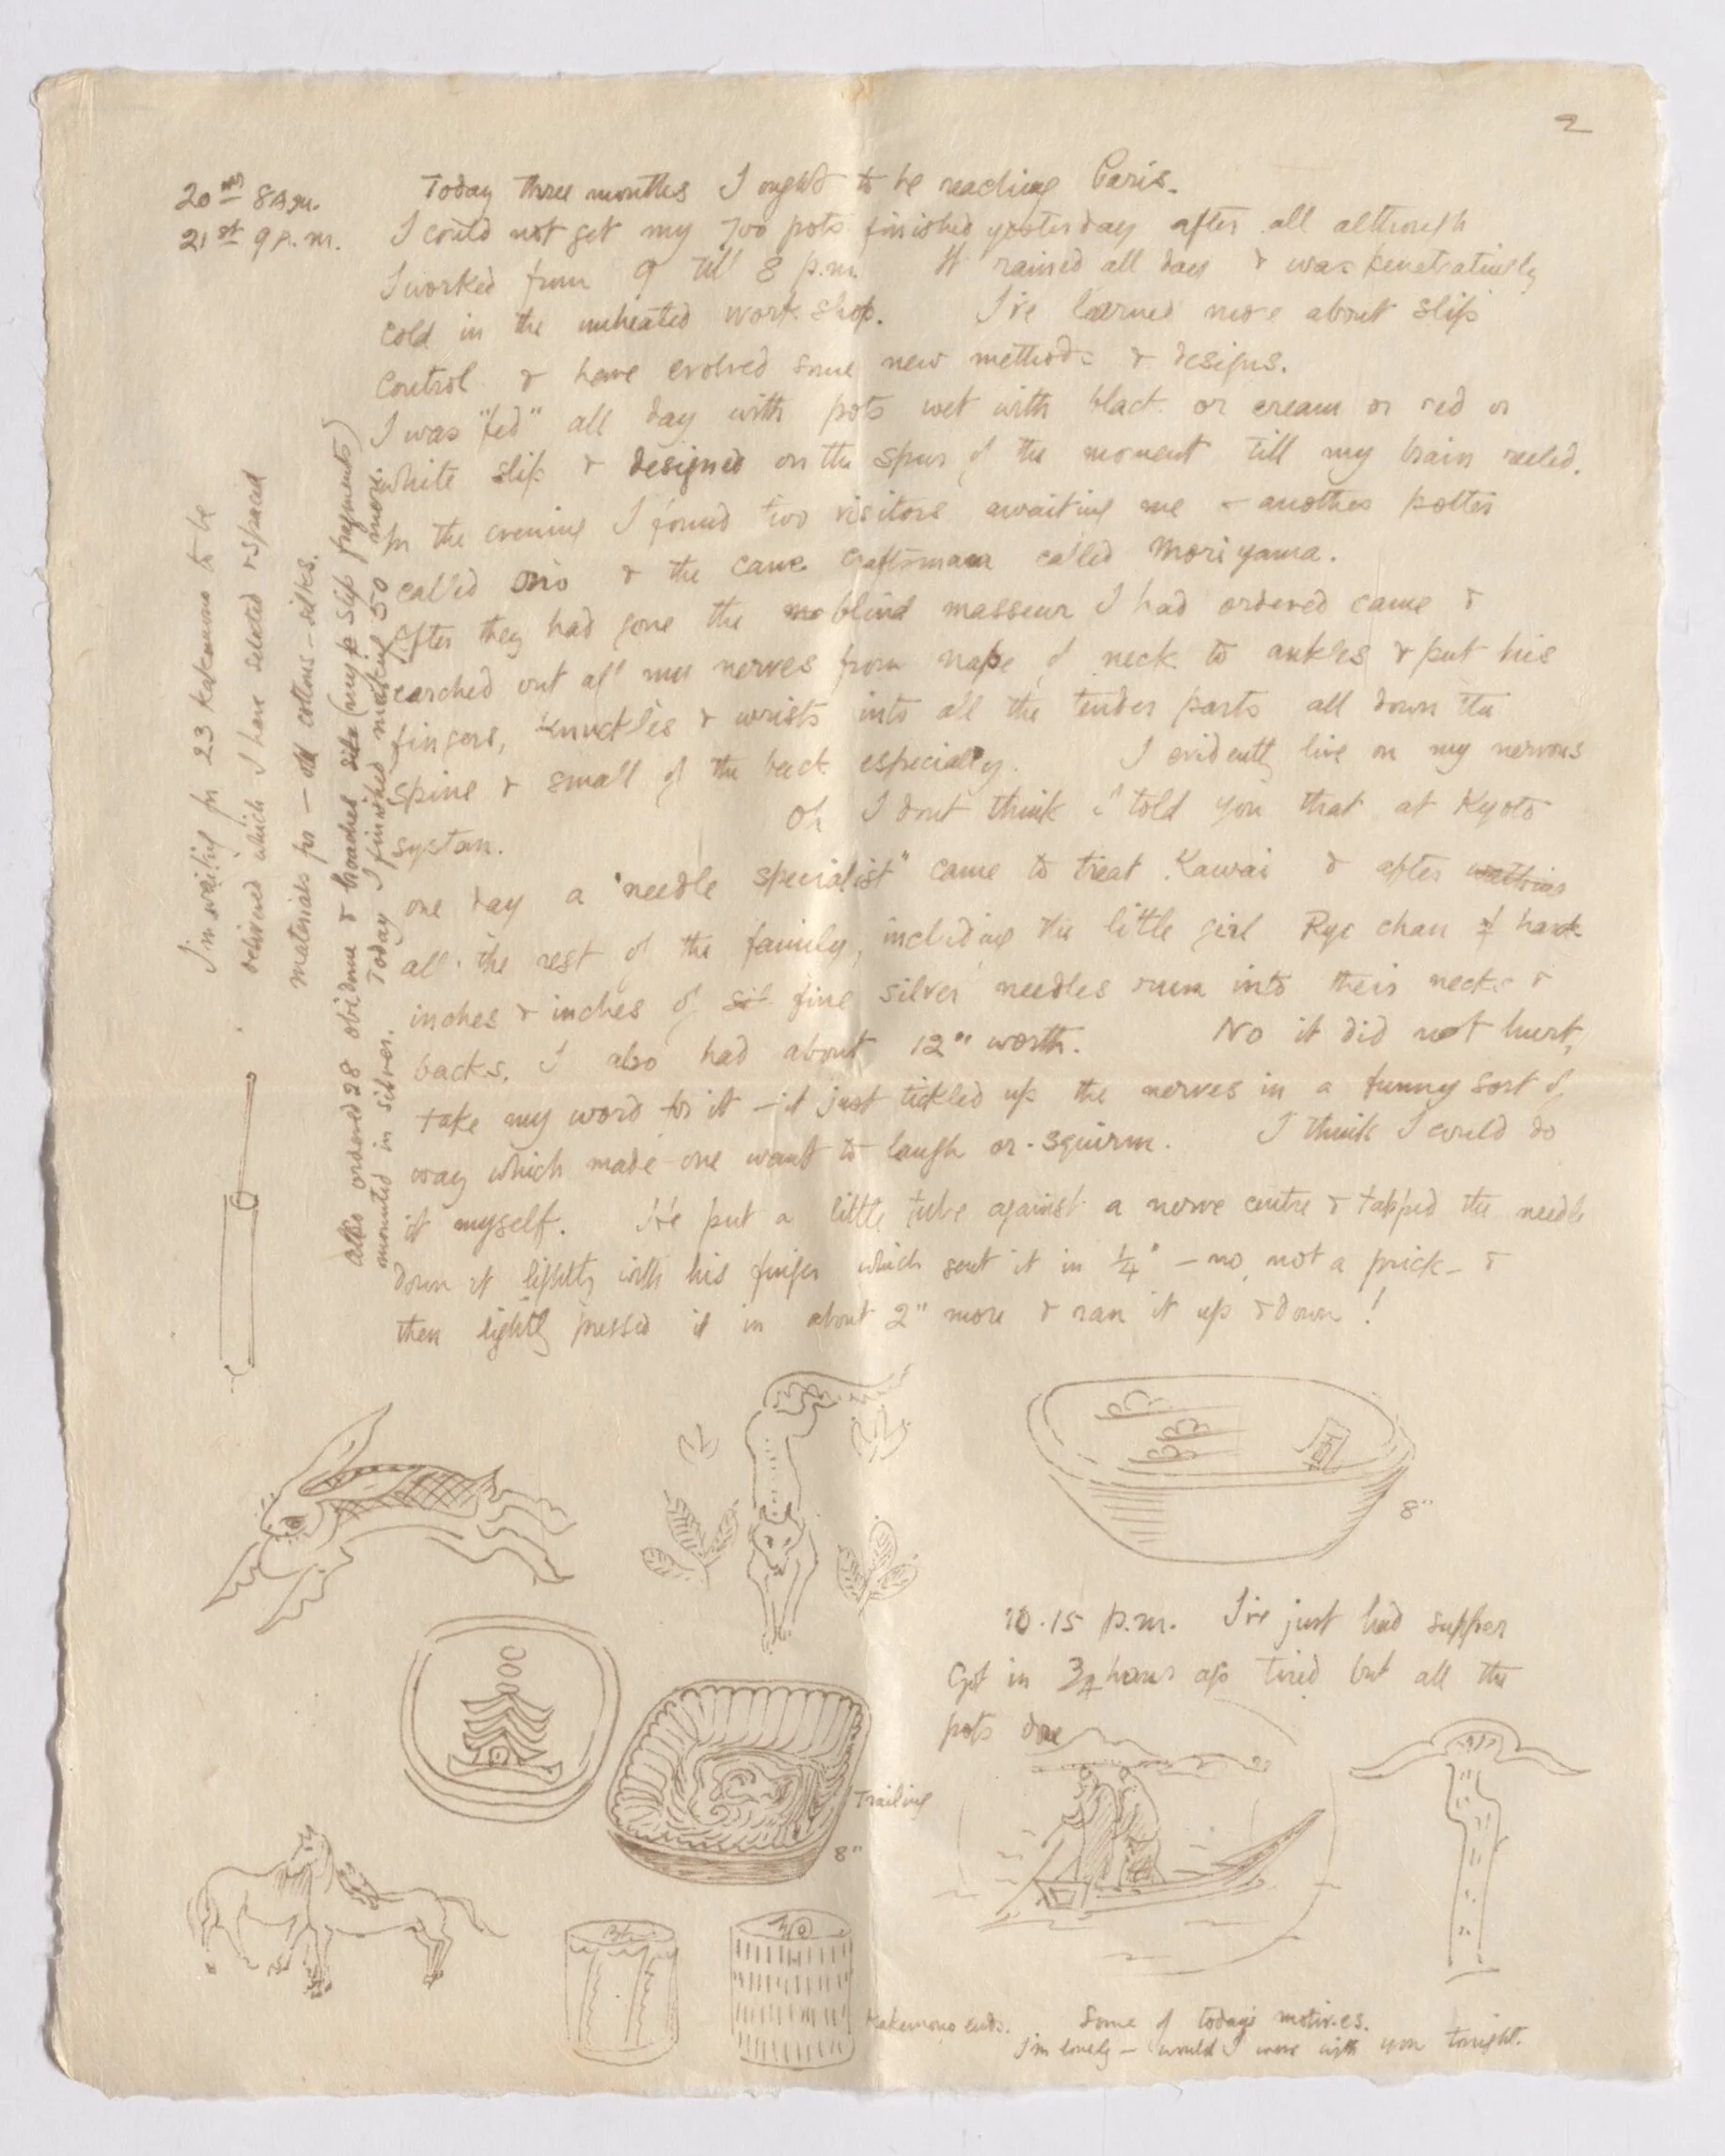 2
20th 8 A.m. Today three months I ought to be reaching Paris.
21st 9 p.m. I could not get my 700 pots finished yesterday after all although
I worked from 9 till 8 p.m. It rained all day & was penetratingly
cold in the unheated work shop. I've learned more about slip
control & have evolved some new methods & designs.
I was "fed" all day with pots wet with black or cream or red or
white slip & designed on the spur of the moment till my brain reeled.
In the evening I found two visitors awaiting me – another potter
called Ono & the cane craftsman called Moriyama.
After they had gone the blind masseur I had ordered came &
searched out all my nerves from nape of neck to ankles & put his
fingers, knuckles & wrists into all the tender parts all down the
spine & small of the back especially. I evidently live on my nervous
system. Oh I dont think I told you that at Kyoto
one day a "needle specialist" came to treat Kawai & after
all the rest of the family, including the little girl chan had
inches & inches of sil fine silver needles run into their necks &
backs. I also had about 12" worth. No it did not hurt,
take my word for it – it just tickled up the nerves in a funny sort of
way which made one want to laugh or squirm. I think I could do
it myself. He put a little tube against a nerve centre & tapped the needle
down it lightly with his finger which sent it in ¼" – no, not a prick – &
then lightly pressed it in about 2" more & ran it up & down!
I'm waiting for 23 Kakemono to be
delivered which I have selected
materials for – old cottons – silks.
also ordered 28 obidome & broaches (my slip fragments)
mounted in silver. Today I finished making 50 more.
8"
10.15 p.m. I've just had supper
Got in ¾ hours ago tired but all the
pots done
Trailing
8"
Kakemono ends.
Some of today's motives.
I'm lonely – would I were with you tonight.